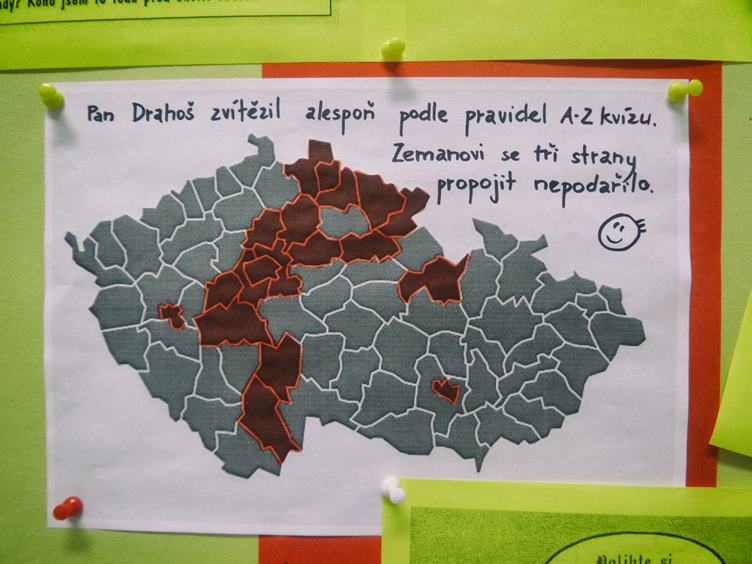 Koho jsem to
Pan Drahoš zvítězil alespoň podle pravidel A-Z kvízu.
Zemanovi se tři strany
propojit nepodařilo.